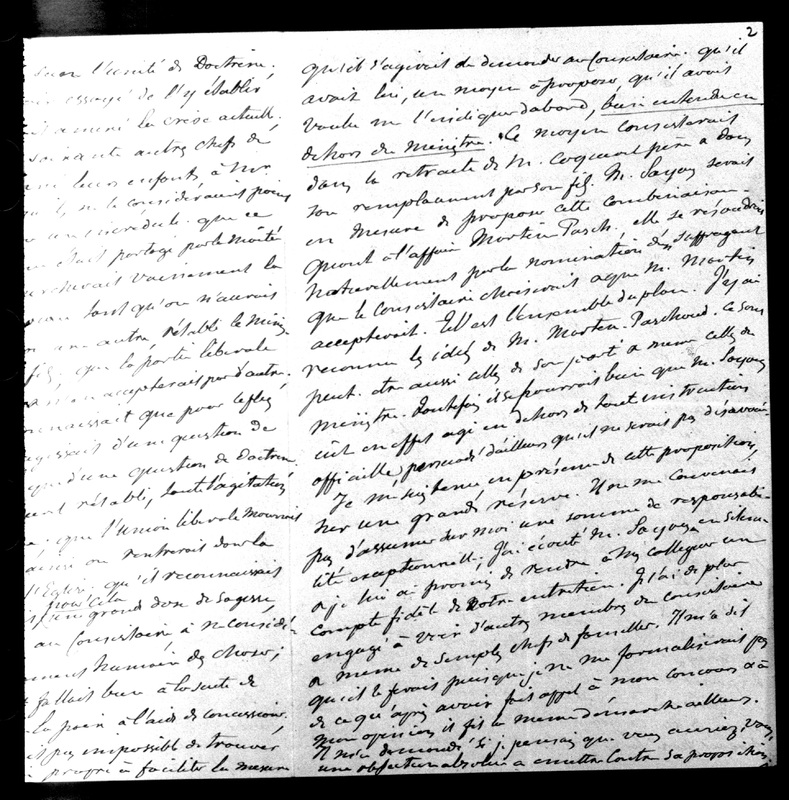 sur l'unité de Doctrine.
essayé de l'y établir,
amené la crise actuelle.
soixante autres chefs de
leurs enfants à Mr
ils ne le considéraient point
un incrédule. que ce
était partagé par la moitié
vainement la
tant qu'on n'aurait
une autre, rétabli le Minis
fils, que la partie libérale
n'en accepterait pas d'autre.
connaissait que pour le fils
agissait d'une question de
que d'une question de doctrine.
rétabli, toute l'agitation
que l'union libérale mourrait
ainsi on rentrerait dans la
l'Eglise. qu'il reconnaissait
pour cela
un grand don de sagesse
au Consistoire à ne considé-
humain des choses;
fallait bien à la suite de
la paix à l'aide de concessions.
pas impossible de trouver
propre à faciliter la mesure
2
qu'il s'agissait de demander au Consistoire. qu'il
avait lui, un moyen à proposer, qu'il avait
voulu me l'indiquer d'abord, bien entendu en
dehors du ministre. Ce moyen consisterait
dans la retraite de M. Coquerel père & dans
son remplacement par son fils. M. Sayous serait
en mesure de proposer cette combinaison.
Quant à l'affaire Martin Pasch., elle se résoudrait
naturellement par la nomination d'un suffragant
que le Consistoire choisirait & que M. Martin
accepterait. Tel est l'ensemble du plan. J'y ai
reconnu les idées de M. Martin-Paschoud. Ce sont
peut-être aussi celles de son parti & même celles du
ministre. Toutefois il se pourrait bien que M. Sayous
eût en effet agi en dehors de toute instruction
officielle, persuadé d'ailleurs qu'il ne serait pas désavoué.
Je me suis tenu en présence de cette proposition
sur une grande réserve. Il ne me convenait
pas d'assumer sur moi une somme de responsabi-
lité exceptionnelle. J'ai écouté M. Sayous en silence
& je lui ai promis de rendre à mes collègues un
compte fidèle de notre entretien. Je l'ai de plus
engagé à voir d'autres membres du Consistoire
& même de simples chefs de famille. Il m'a dit
qu'il le ferait puisque je ne me formaliserais pas
de ce qu'après avoir fait appel à mon concours & à
mon opinion, il fît la même démarche ailleurs.
Il m'a demandé si je pensais que vous auriez, vous,
une objection absolue à émettre contre sa proposition,